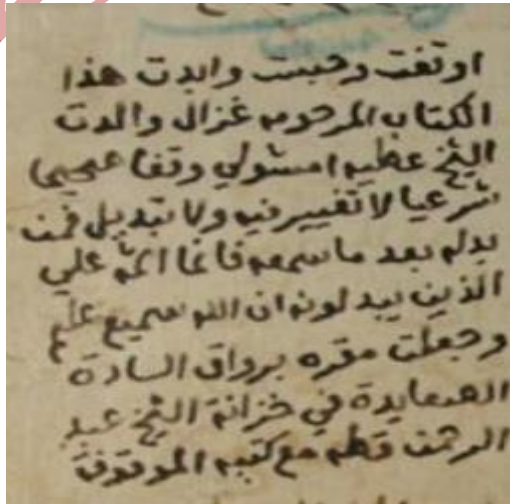 اوقفت وحبست وابدت هذا
الكتاب المرحومه غزال والدت
الشيخ عطيه امشولي وقفا صحيحا
شرعيا لا تغيير فيه ولا تبديل فمن
بدله بعد ما سمعه فانما اثمه علي
الذين يبدلونه ان الله سميع عليم
وجعلت مقره برواق السادة
الصعايدة في خزانة الشيخ عبد
الرحمن قطه مع كتبه الموقوفة